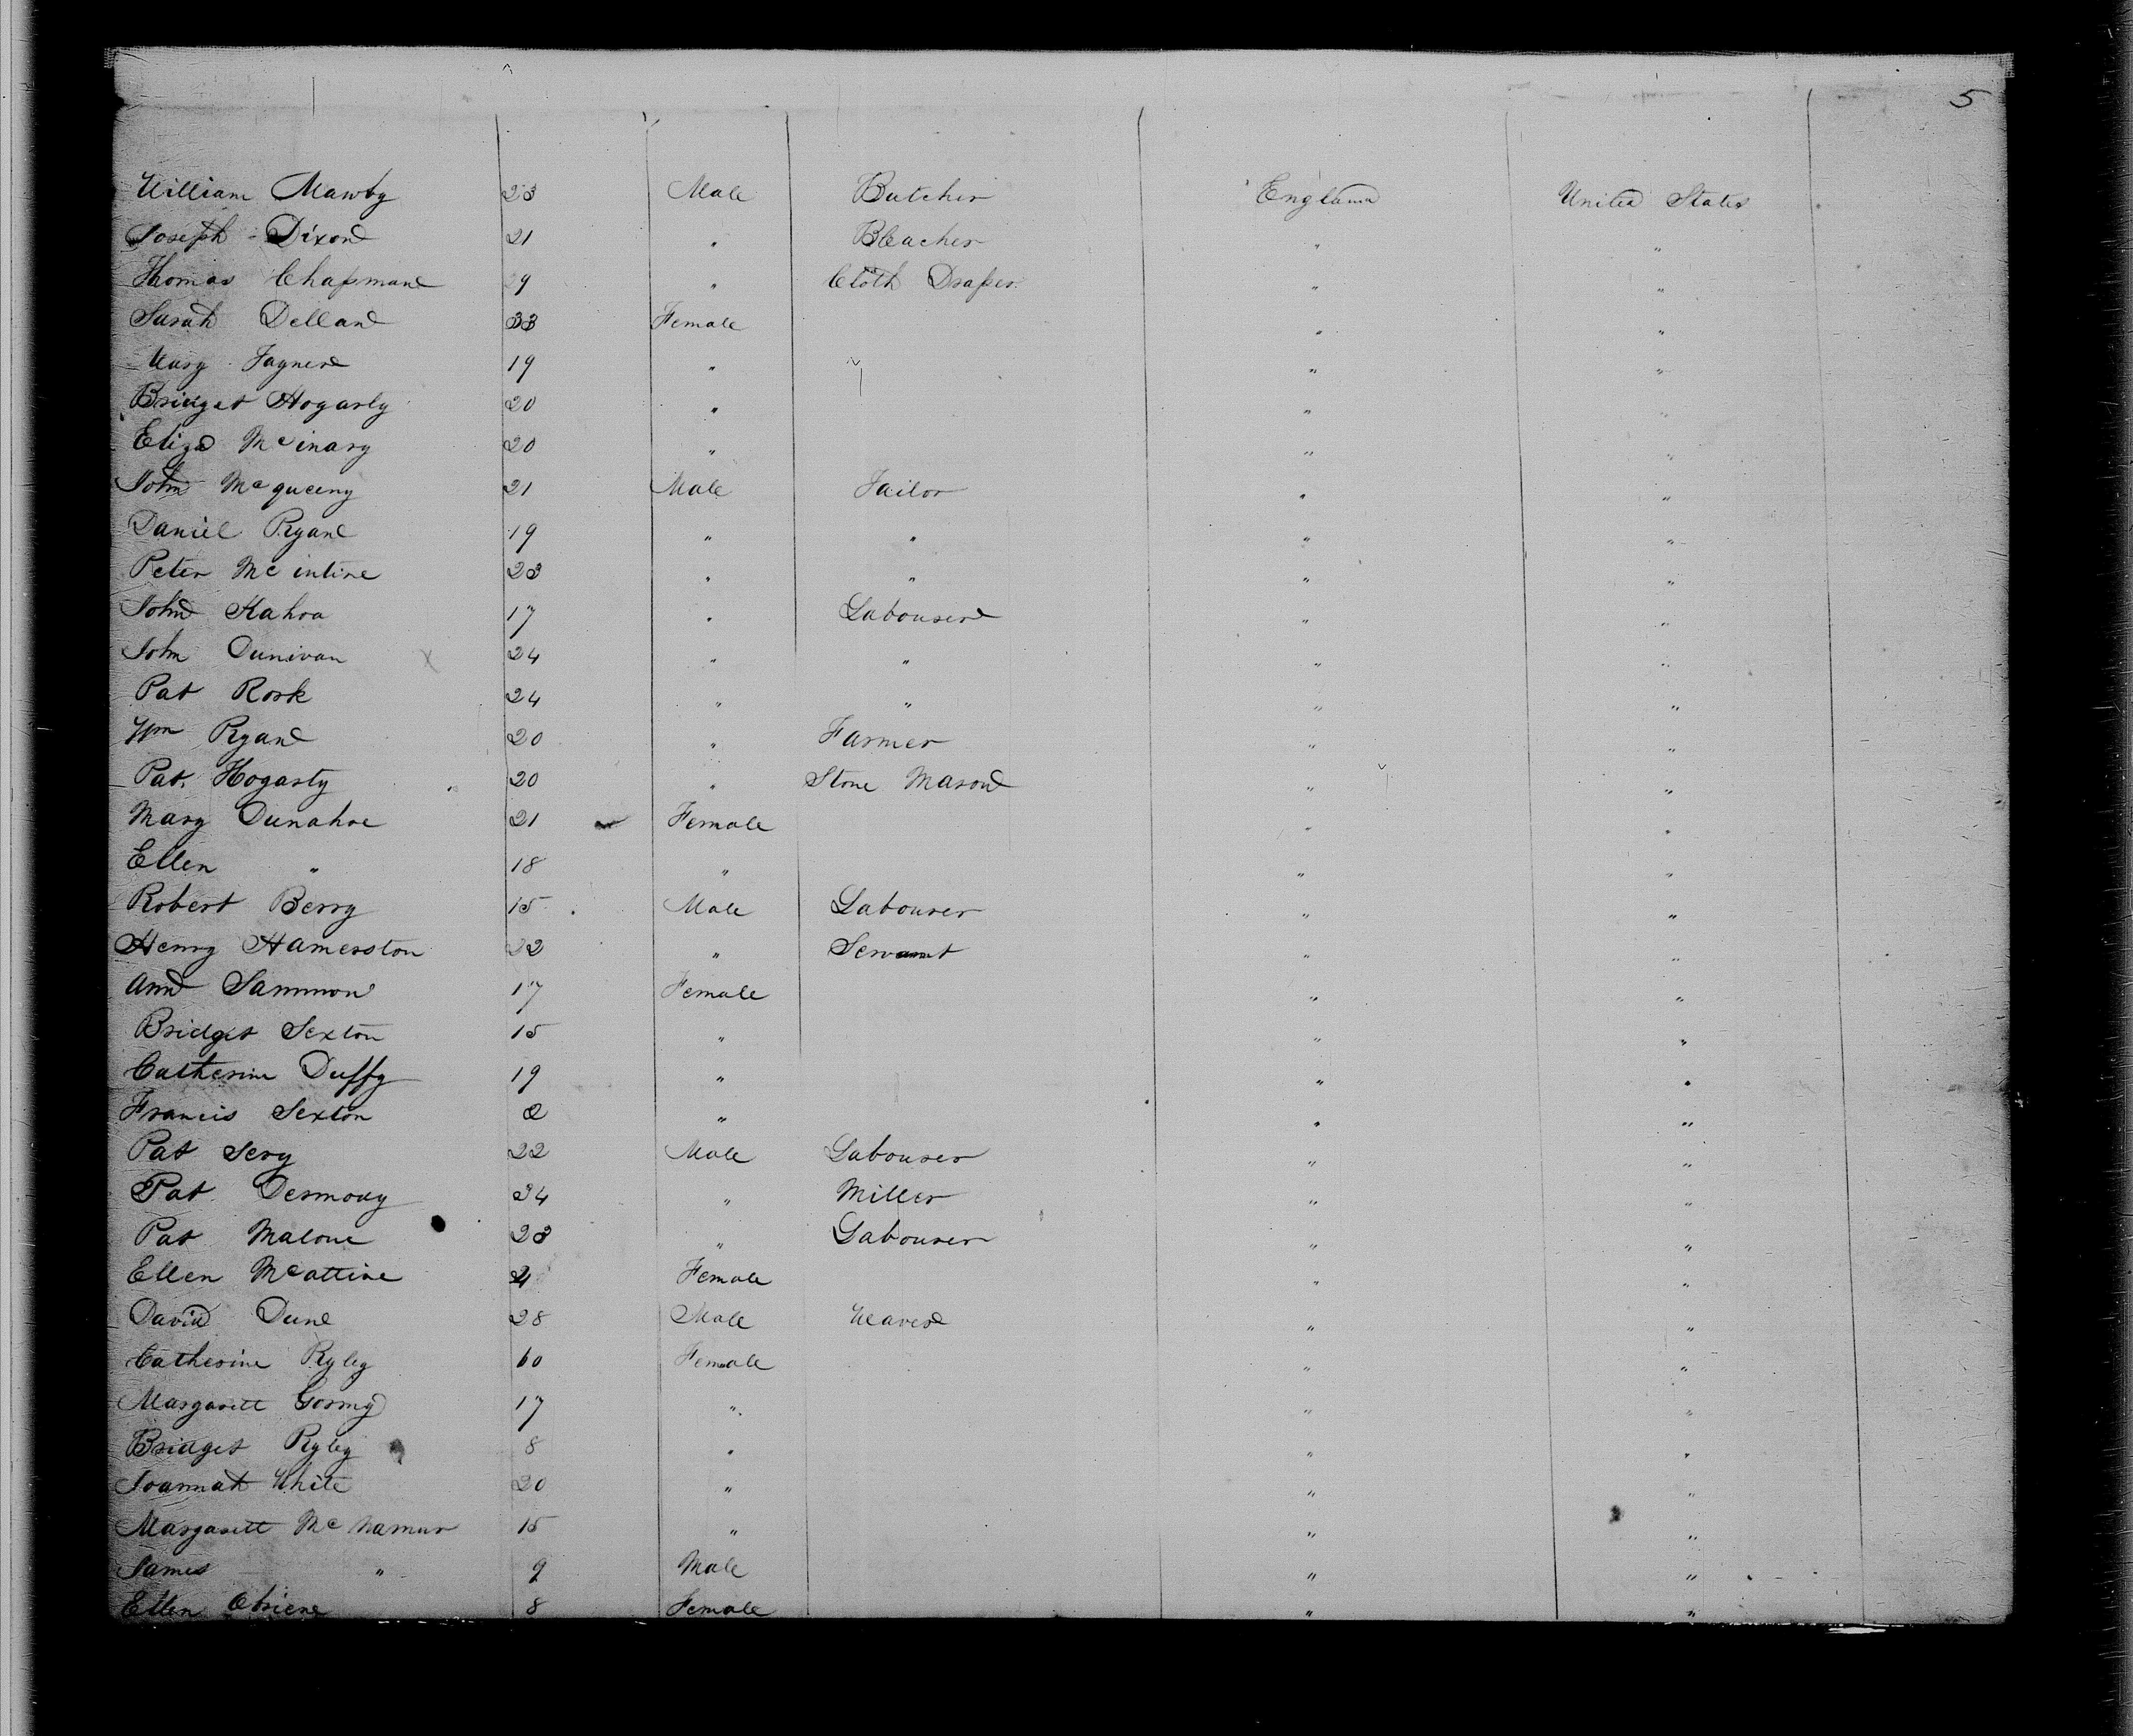 5
William Mawby 23 Male Butcher England United States
Joseph Dixon 21 " Bleacher " "
Thomas Chapman 29 " Cloth Draper " "
Sarah Dellan 33 Female " "
Mary Fagner 19 " " "
Bridget Hogarty 20 " " "
Eliza McInary 20 " " "
John Mcqueeny 21 Male Tailor " "
Daniel Ryan 19 " " " "
Peter Mcintire 23 " " " "
John Kahoa 17 " Labourer " "
John Dunivan 24 " " " "
Pat Rork 24 " " " "
Wm Ryan 20 " Farmer " "
Pat. Hogarty 20 " Stone Mason " "
Mary Dunahoe 21 Female " "
Ellen " 18 " " "
Robert Berry 15 Male Labourer " "
Henry Hamerston 22 " Servant " "
Ann Sammon 17 Female " "
Bridget Sexton 15 " " "
Catherine Duffy 19 " " "
Francis Sexton 2 " " "
Pat Sery 22 Male Labourer " "
Pat Dermony 34 " Miller " "
Pat Malone 23 " Labourer " "
Ellen Mcattire Female " "
David Dune 28 Male Weaver " "
Catherine Ryley 60 Female " "
Margarett Gormy 17 " " "
Bridget Ryley 8 " " "
Joannah White 20 " " "
Margarett McNamar 15 " " "
James " 9 Male " "
Ellen Obriene 8 Female " "